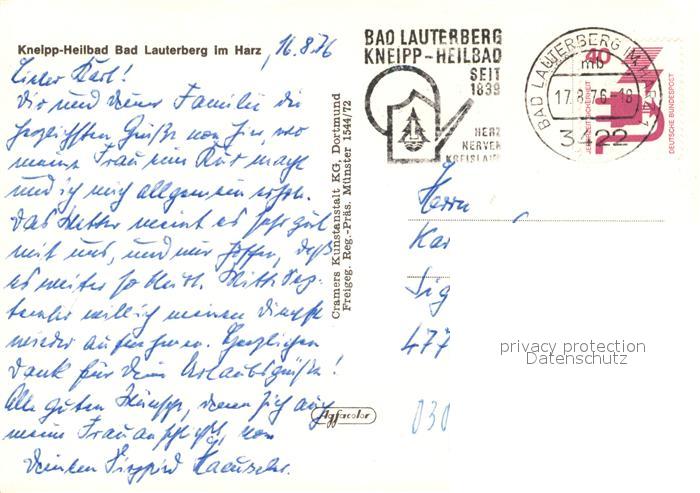 Kneipp-Heilbad Bad Lauterberg im Harz
16.8.76
Lieber Karl!
Dir und Deiner Familie die
herzlichsten Grüße von hier, wo
meine Frau eine Kur macht
und ich mich allgemein erhole.
Das Wetter meint es sehr gut
mit uns, und wir hoffen, daß
es weiter so bleibt. Mitte Sep-
tember will ich meinen Dienst
wieder aufnehmen. Herzlichen
Dank für Deine Urlaubsgrüße!
Alle guten Wünsche, denen sich auch
meine Frau anschließt, von
Deinem Siegfried
Cramers Kunstanstalt KG, Dortmund
Freigeg. Reg.-Präs. Münster 1544/72
Agfacolor
BAD LAUTERBERG
KNEIPP-HEILBAD
SEIT
1839
HERZ
NERVEN
KREISLAUF
BAD LAUTERBERG IM HARZ 1
mb
17.8.76-18
3422
40
DEUTSCHE BUNDESPOST
Herrn
Kar
Sig
477
030
privacy protection
Datenschutz